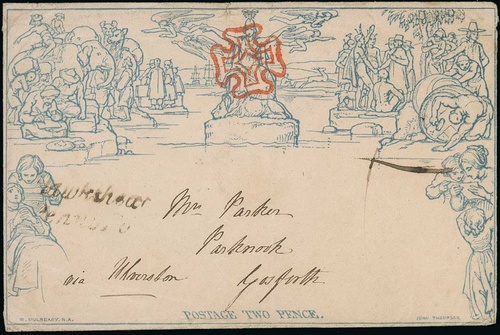 Mr Parker
Parknook
via Ulverston Gosforth
POSTAGE TWO PENCE.
W. MULREADY, R.A. JOHN THOMPSON